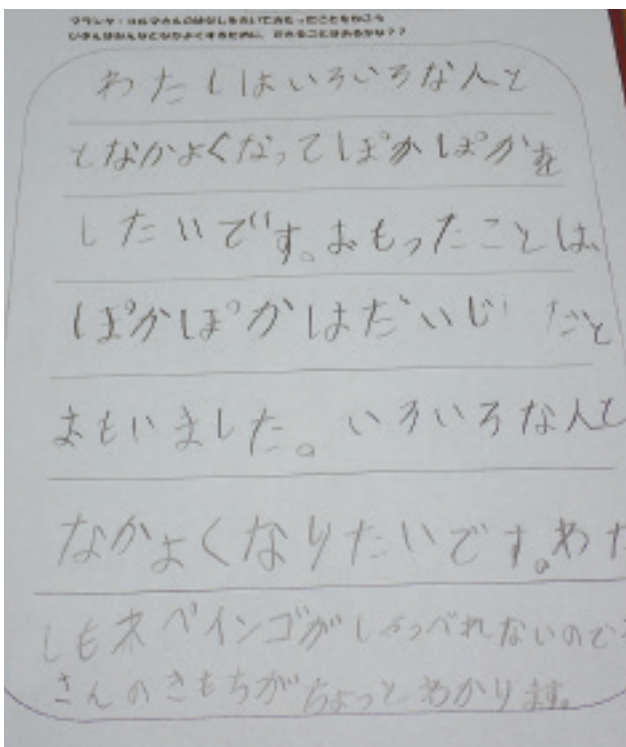 わたしはいろいろな人と
となかよくなってぽかぽかを
したいです。おもったことは、
ぽかぽかはだいじだと
おもいました。いろいろな人と
なかよくなりたいです。わた
しも ペインゴがしゃべれないので
さんのきもちがちょっとわかります。